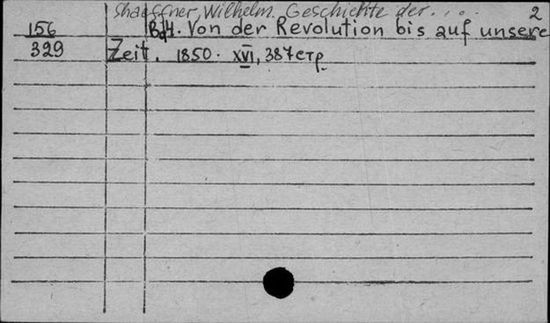 Shaeffner, Wilhelm. Geschichte der.... 2
156 Bd4. Von der Revolution bis auf unsere
329 Zeit. 1850. XVI, 387 стр.